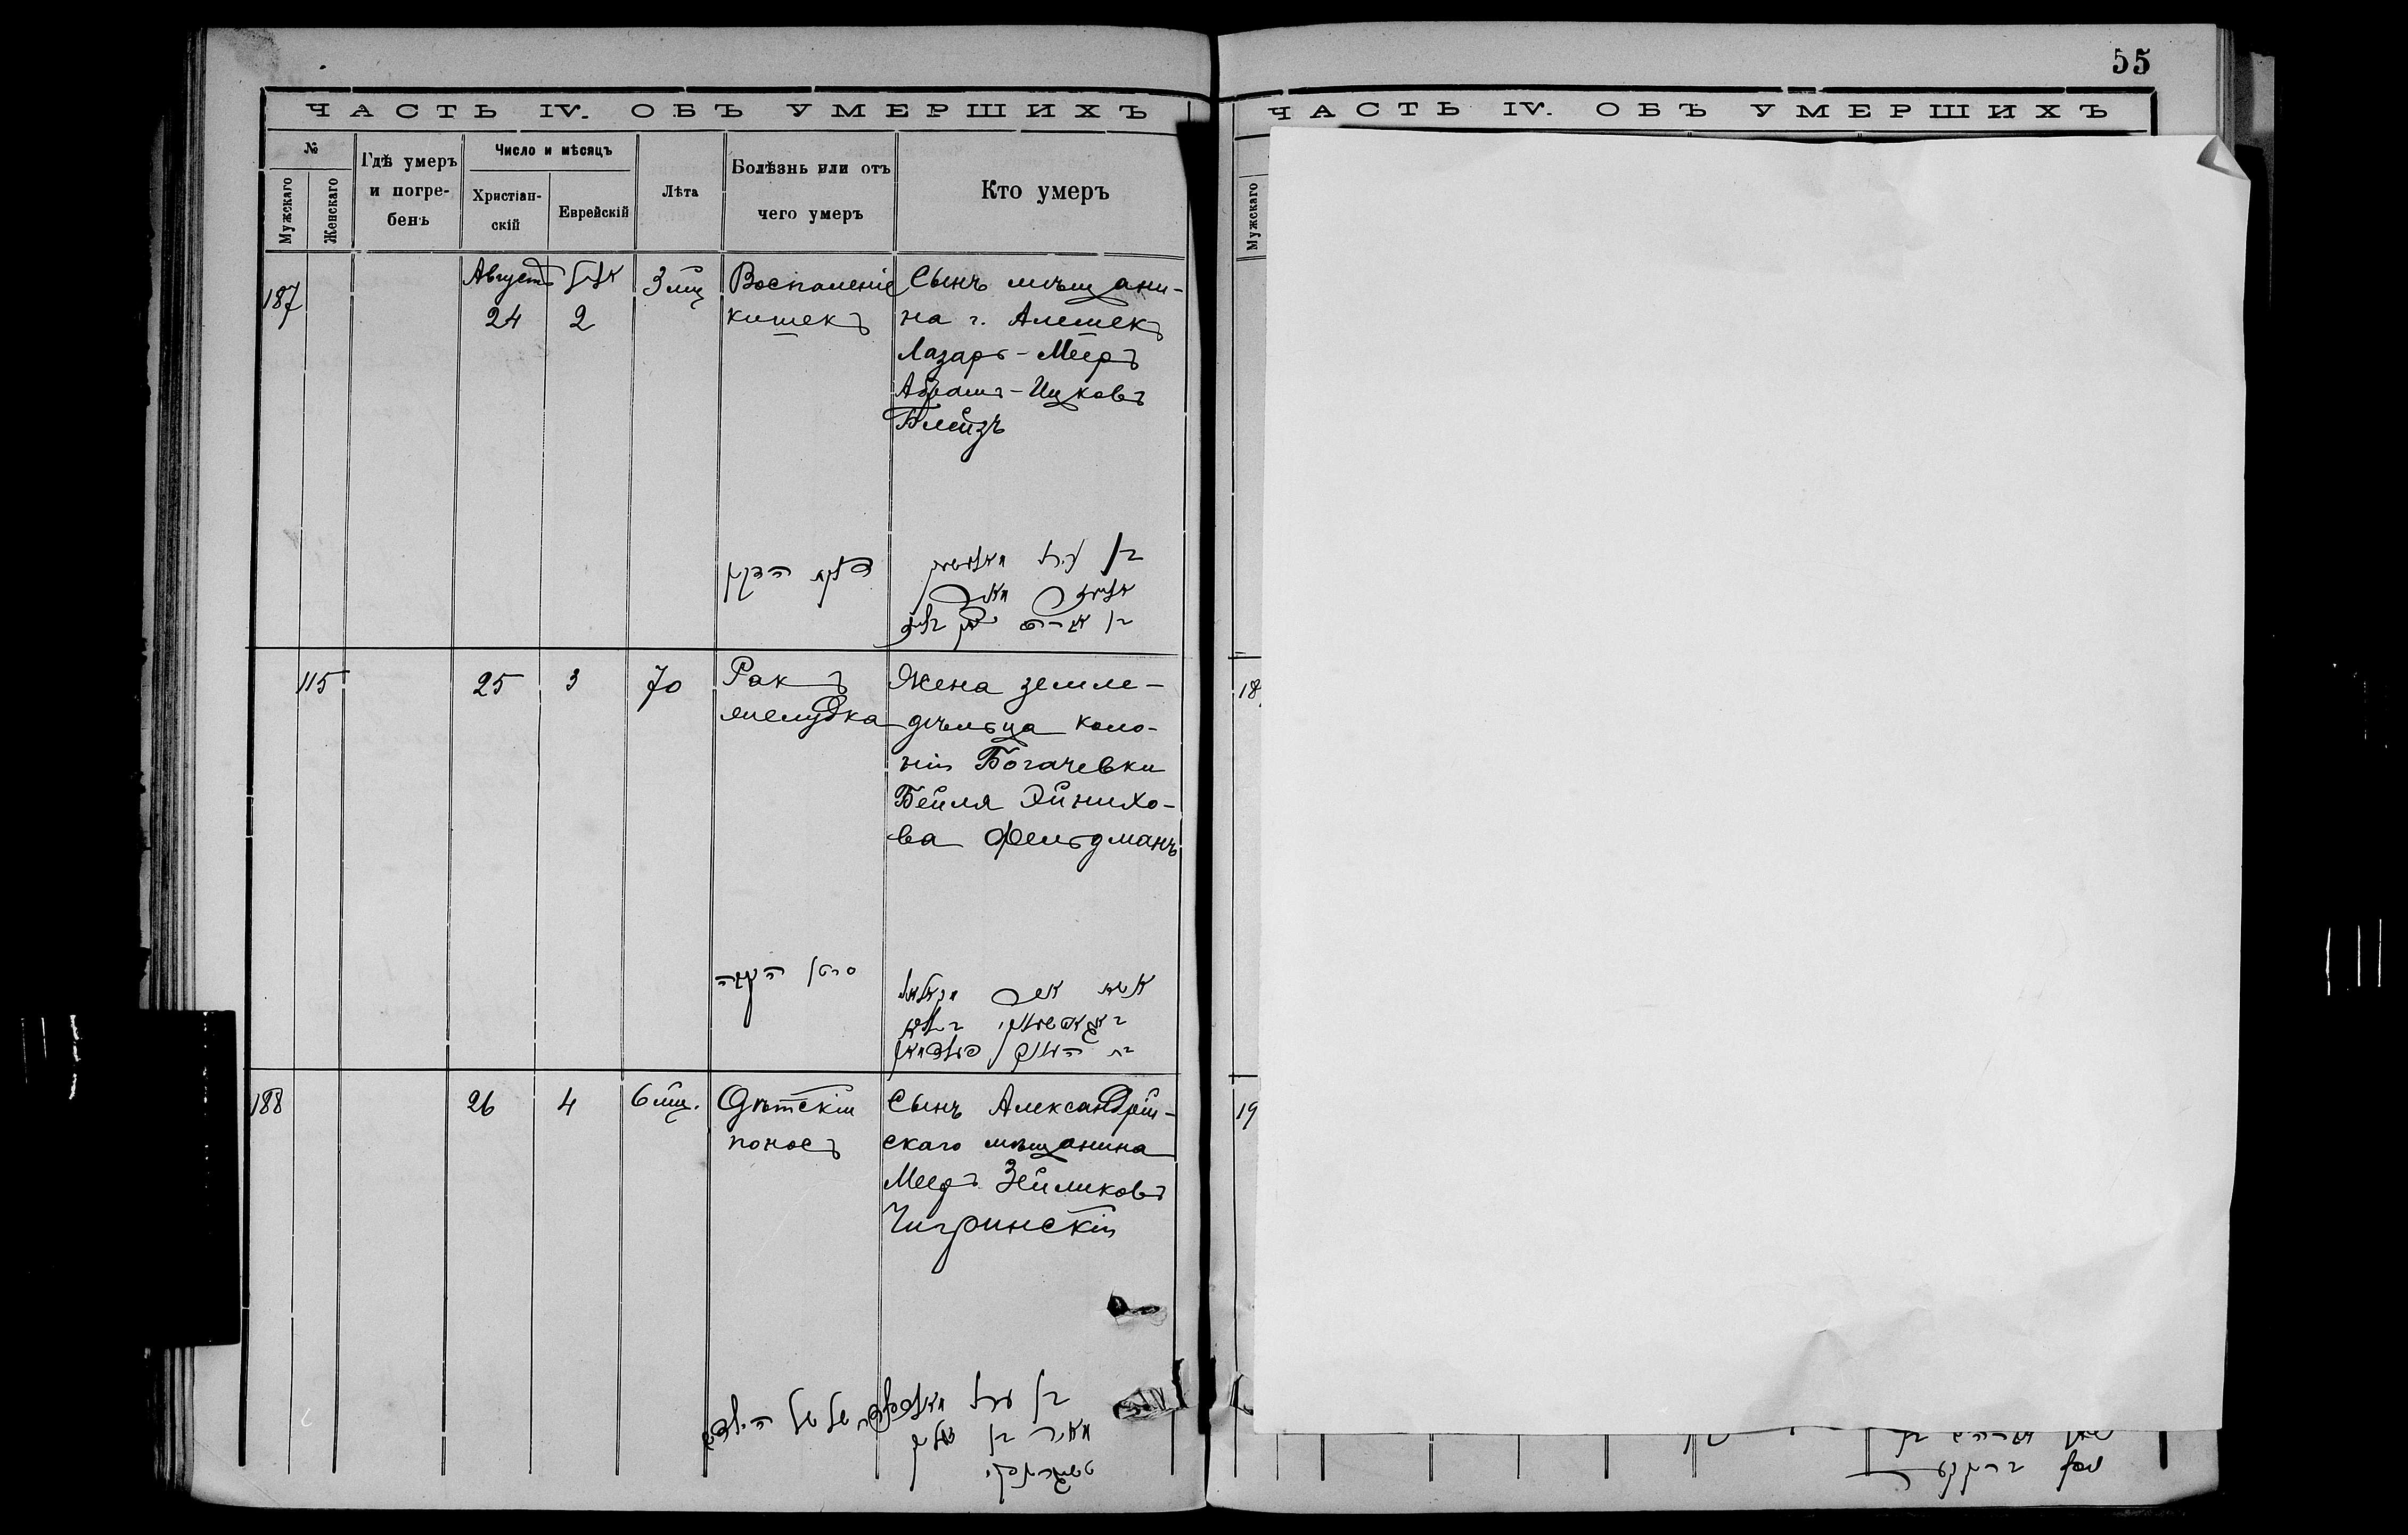 55
ЧАСТЬ IV. ОБЪ УМЕРШИХЪ
№
Мужскаго
Женскаго
Гдѣ умеръ
и погре-
бенъ
Число и мѣсяцъ
Христіан-
скій
Еврейскій
Лѣта
Болѣзнь или отъ
чего умеръ
Кто умеръ
187
Августъ
24
אלול
2
3 мц
Воспаленіе
кишекъ
Сынъ мѣщани-
на г. Алешекъ
Лазарь-Мееръ
Абрамъ-Ицковъ
Блейзъ
בן
115
25
3
70
Ракъ
желудка
Жена земле-
дѣльца коло-
ніи Богачевки
Бейля Эйнихо-
ва Фельдманъ
סרטן הקבה
אשת
188
26
4
6 мц.
Дѣтскій
поносъ
Сынъ Александрій-
скаго мѣщанина
Мееръ Зейликовъ
Чигринскій
שלשול הילדים
בן
מאיר בן זעליק
ЧАСТЬ IV. ОБЪ УМЕРШИХЪ
Мужскаго
18
19